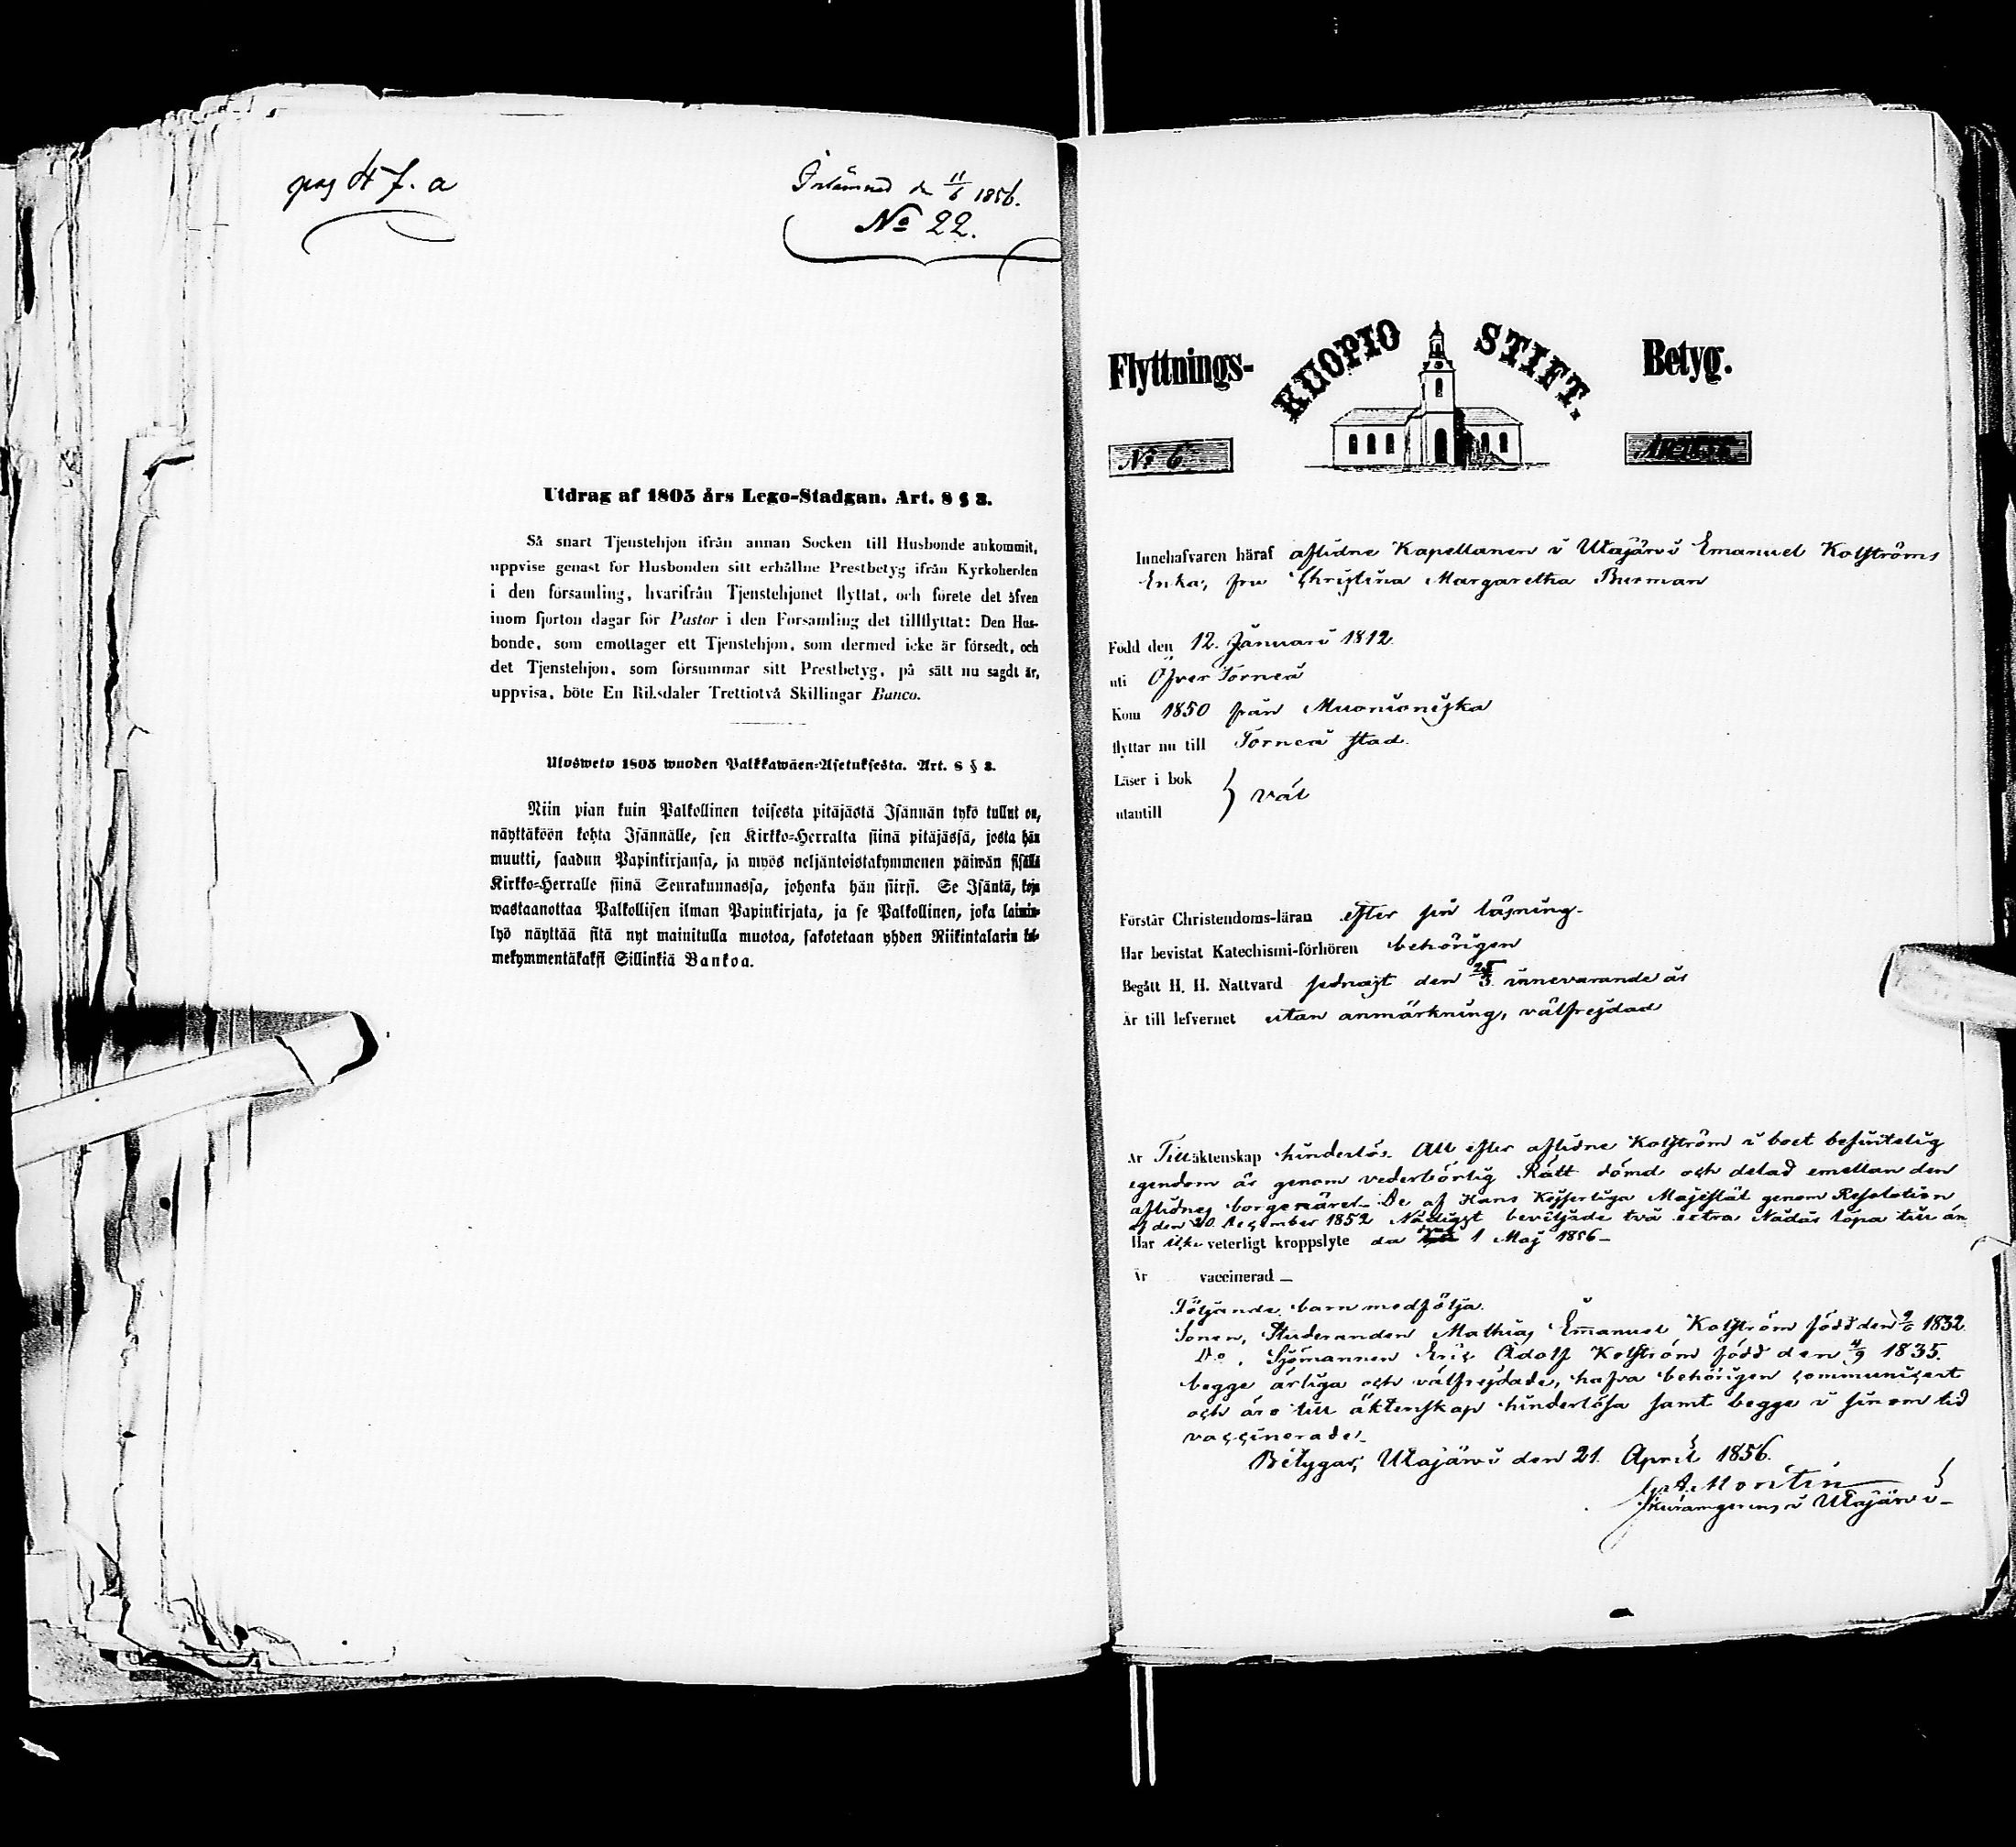 pag 47. a
Inlämnad den 11/6 1856.
No 22.
Utdrag af 1805 års Lego-Stadgan. Art. 8 § 3.
Så snart Tjenstehjon ifrån annan Socken till Husbonde ankommit,
uppvise genast för Husbonden sitt erhållne Prestbetyg ifrån Kyrkoherden
i den församling, hvarifrån Tjenstehjonet flyttat, och förete det äfven
inom fjorton dagar för Pastor i den Församling det tillflyttat: Den Hus-
bonde, som emottager ett Tjenstehjon, som dermed icke är försedt, och
det Tjenstehjon, som försummar sitt Prestbetyg, på sätt nu sagdt är,
uppvisa, böte En Riksdaler Trettiotvå Skillingar Banco.
Ulosweto 1805 wuoden Palkkawäen-Asetuksesta. Art. 8 § 3.
Niin pian kuin Palkollinen toisesta pitäjästä Isännän tykö tullut on,
näyttäköön kohta Isännälle, sen Kirkko-Herralta siinä pitäjässä, josta hän
muutti, saadun Papinkirjansa, ja myös neljäntoistakymmenen päiwän sisällä
Kirkko-Herralle siinä Seurakunnassa, johonka hän siirsi. Se Isäntä, koja
wastaanottaa Palkollisen ilman Papinkirjata, ja se Palkollinen, joka laimin-
lyö näyttää sitä nyt mainitulla muotoa, sakotetaan yhden Riikintalarin kol-
mekymmentäkaksi Sillinkiä Bankoa.
Flyttnings- KUOPIO STIFT. Betyg.
No 6
Innehafvaren häraf aflidne Kapellanen i Utajärvi Emanuel Kolströms
Enka, fru Christina Margaretha Burman
Född den 12. Januari 1812
uti Öfver Torneå
Kom 1850 från Muonioniska
flyttar nu till Torneå stad.
Läser i bok
utantill } väl
Förstår Christendoms-läran efter sin läsning.
Har bevistat Katechismi-förhören behörigen
Begått H. H. Nattvard sednast den innevarande år
Är till lefvernet utan anmärkning, välfrejdad
Är Till äktenskap hinderlös. All efter aflidne Kolström i boet befintelig
egendom är genom vederbörlig Rätt dömd och delad emellan den
aflidnes borgenärer. De af Hans Kejserliga Majestät genom Resolution
af den 20 December 1852 Nådigst beviljade två extra Nådår löpa till än
Har icke veterligt kroppslyte da 1 Maj 1856 –
Är vaccinerad –
Följande barn medfölja.
Sonen, Studeranden Mathias Emanuel Kolström född den 9/6 1832
Do, Sjömannen Eric Adolf Kolström född den 4/9 1835.
begge ärliga och välfrejdade, hafva behörigen communicerat
och äro till äktenskap hinderlösa samt begge i sinom tid
vaccinerade.
Betygar, Utajärvi den 21. April 1856.
Montin
i Utajärvi –